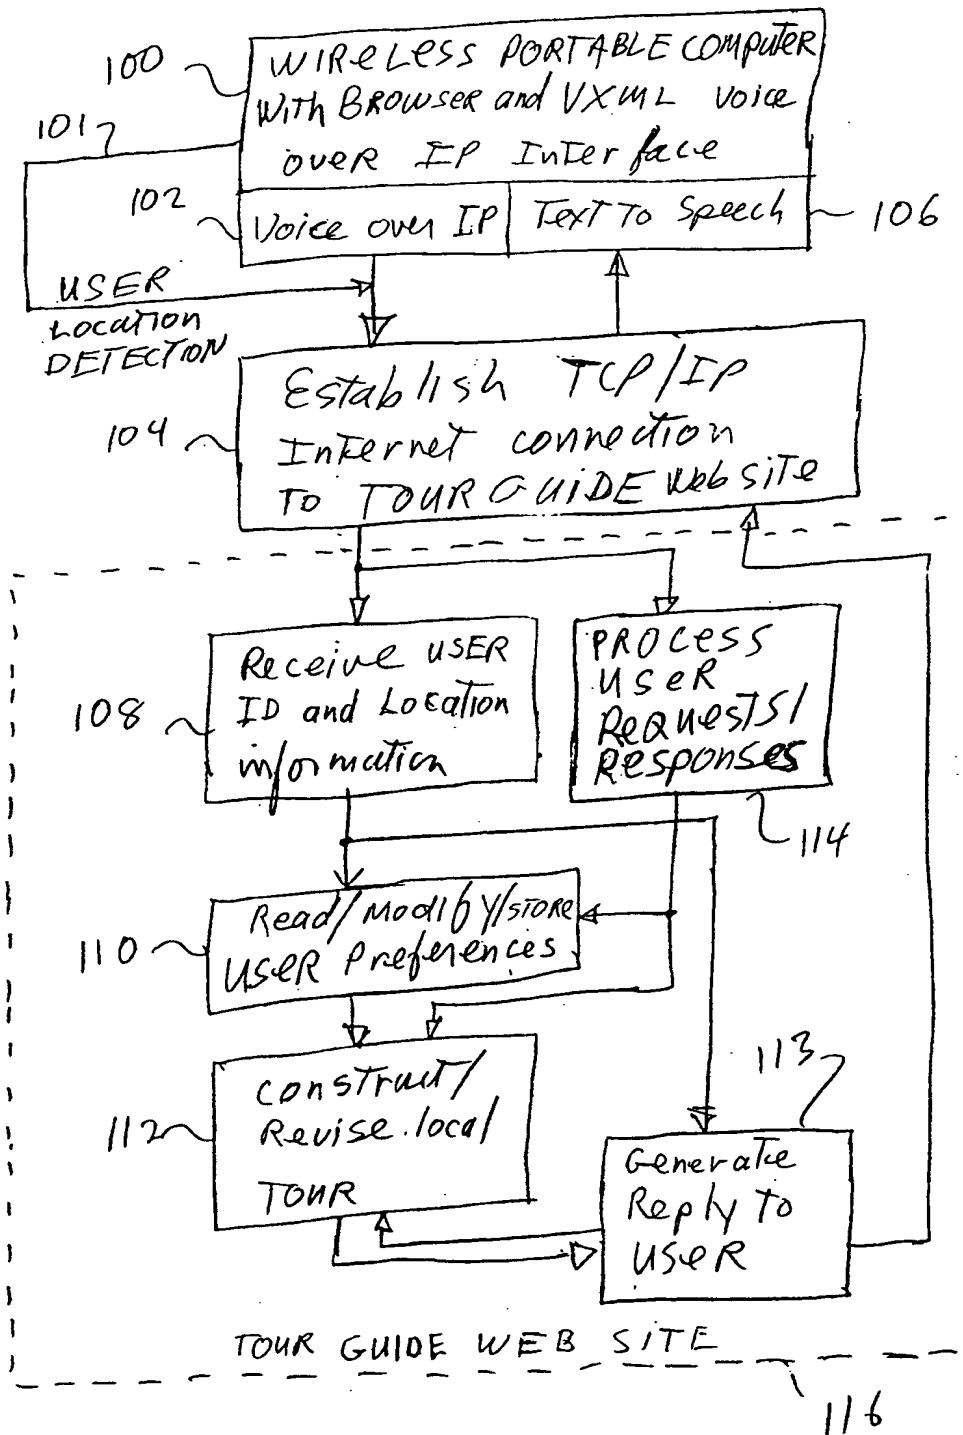 100
WIRELESS PORTABLE COMPUTER
With BROWSER and VXML Voice
over IP Interface
101
102
Voice over IP
Text To Speech
106
USER
Location
DETECTION
Establish TCP/IP
Internet connection
To TOUR GUIDE Web site
104
Receive USER
ID and Location
information
108
PROCESS
USER
Requests/
Responses
114
Read/Modify/STORE
USER Preferences
110
Construct/
Revise local
TOUR
112
113
Generate
Reply to
USER
TOUR GUIDE WEB SITE
116